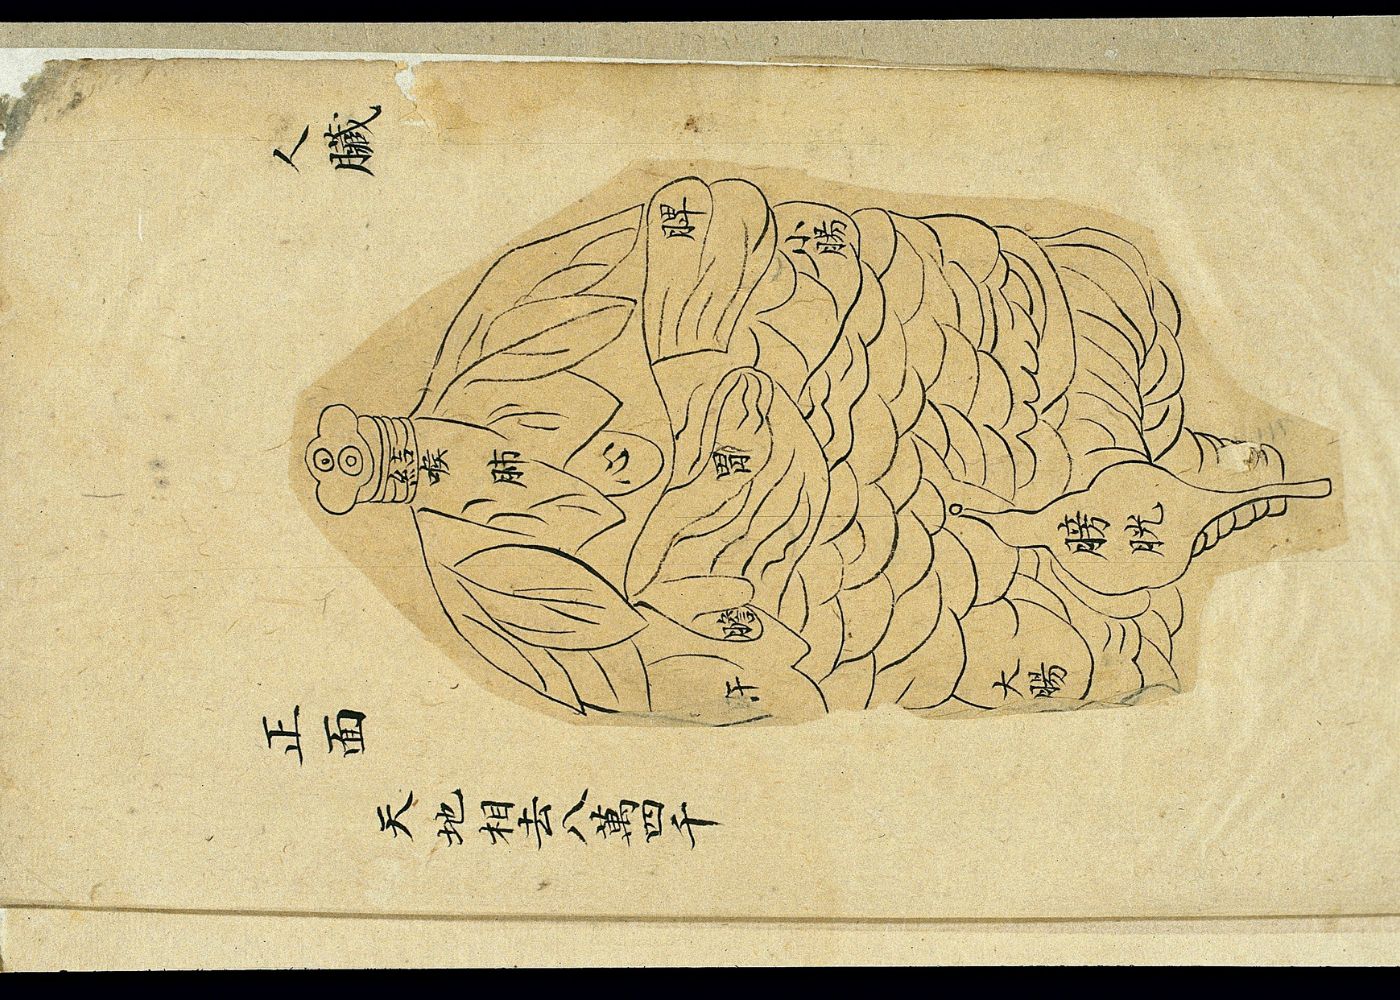 人臟
脾
小腸
結喉
肺
心
胃
膀胱
膽
肝
大腸
正面
天地相去八萬四千